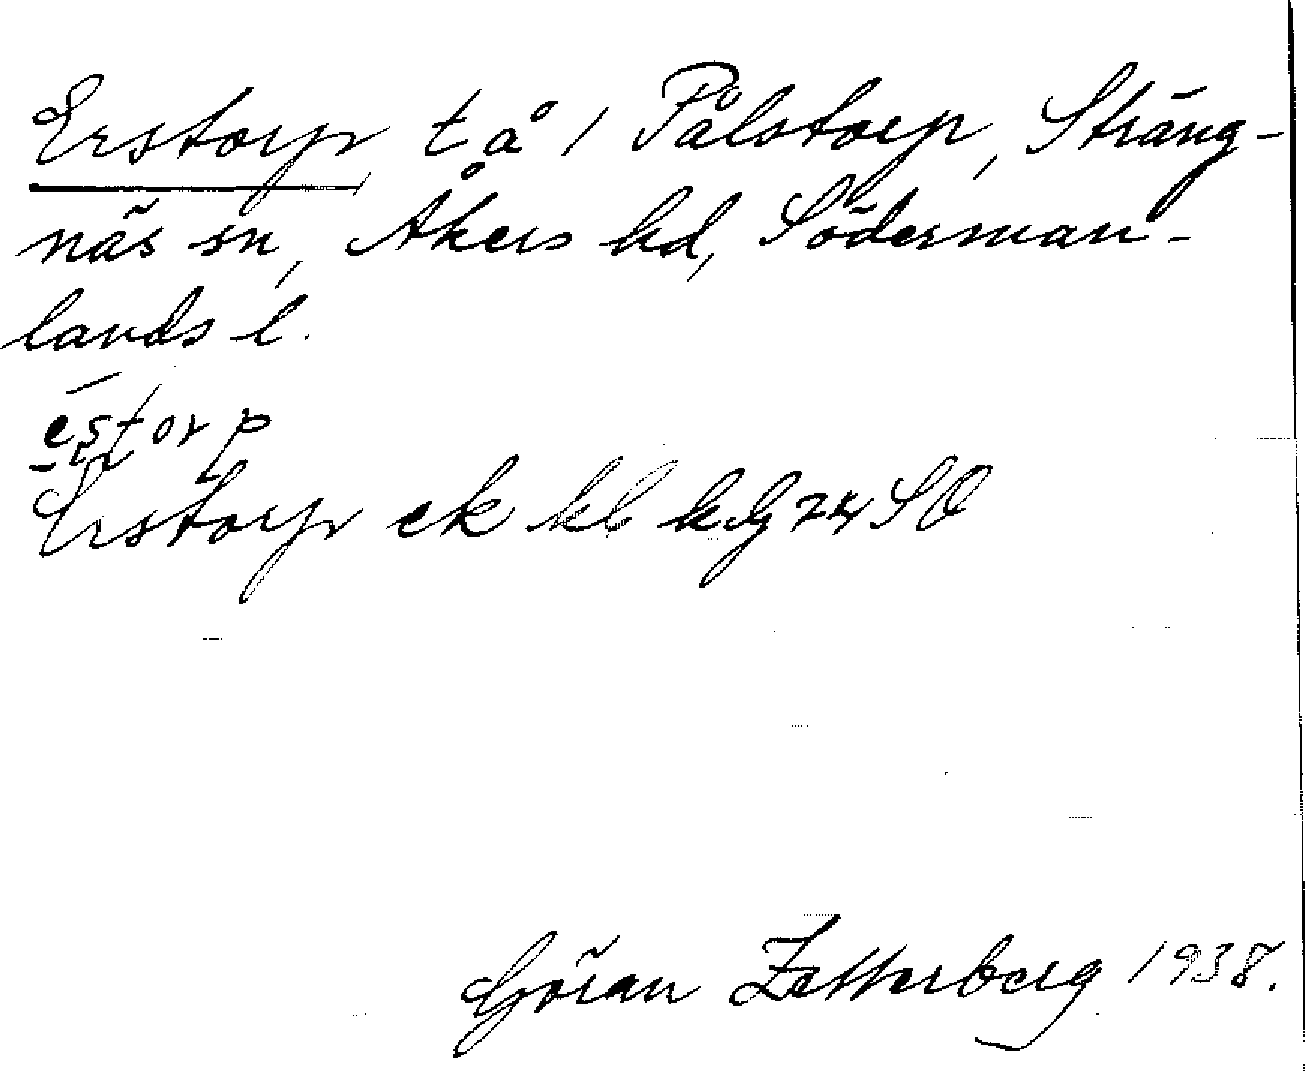 Erstorp t å / Pålstorp, Sträng-
näs sn, Åkers hd, Söderman-
lands l.
éstorp
Erstorp ek kl SO
Göran Zetterberg 1938.